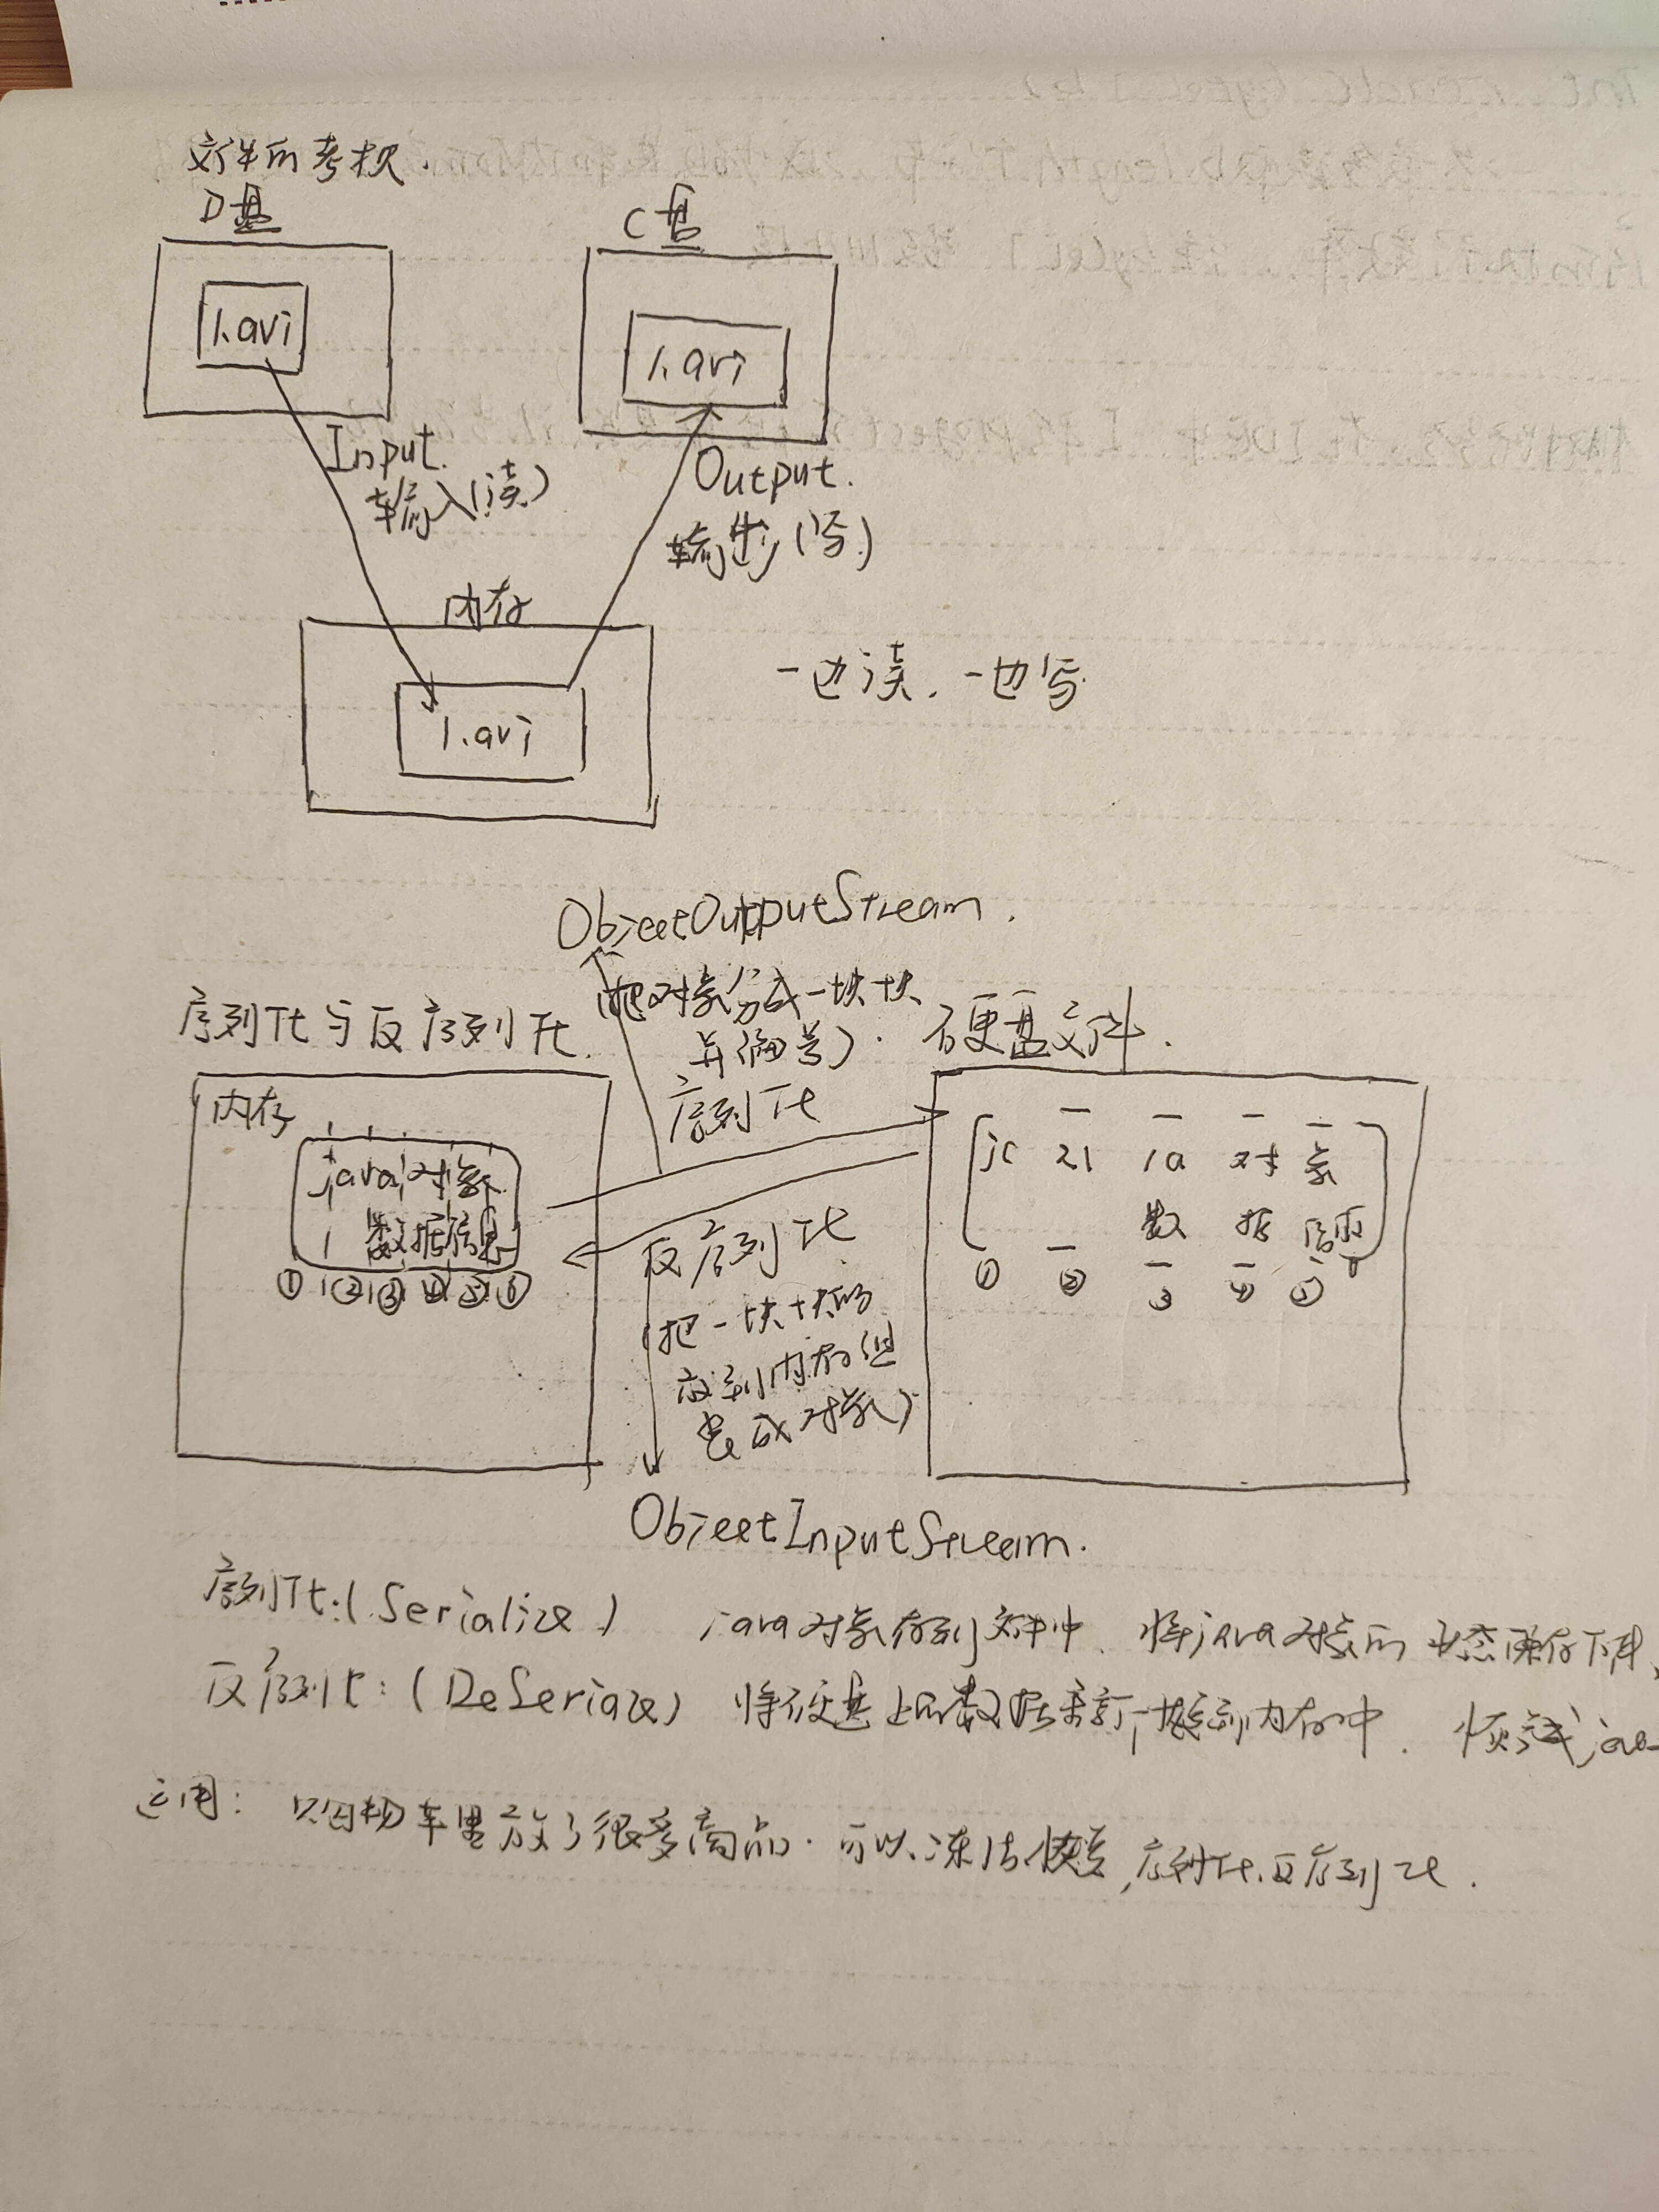 文件的考
D盘
C盘
1.avi
1.avi
Input.
输入(读)
Output.
输出(写)
内存
1.avi
一边读.一边写
ObjectOutputStream.
(把对象分成一块块
并编号).
序列化与反序列化.
硬盘文件.
内存
java对象
数据信息
①②③④⑤⑥
序列化
反序列化
(把一块块的
放到内存组
装成对象)
对 象
数 据 信
① ② ③ ④ ⑤
ObjectInputStream.
序列化:(Serialize) java对象存到文件中.将java对象的状态保存下来、
反序列化:(DeSeriaze) 将硬盘上的数据重新恢复到内存中.恢复成java
运用: 购物车里放了很多商品.可以冻结 序列化.反序列化.